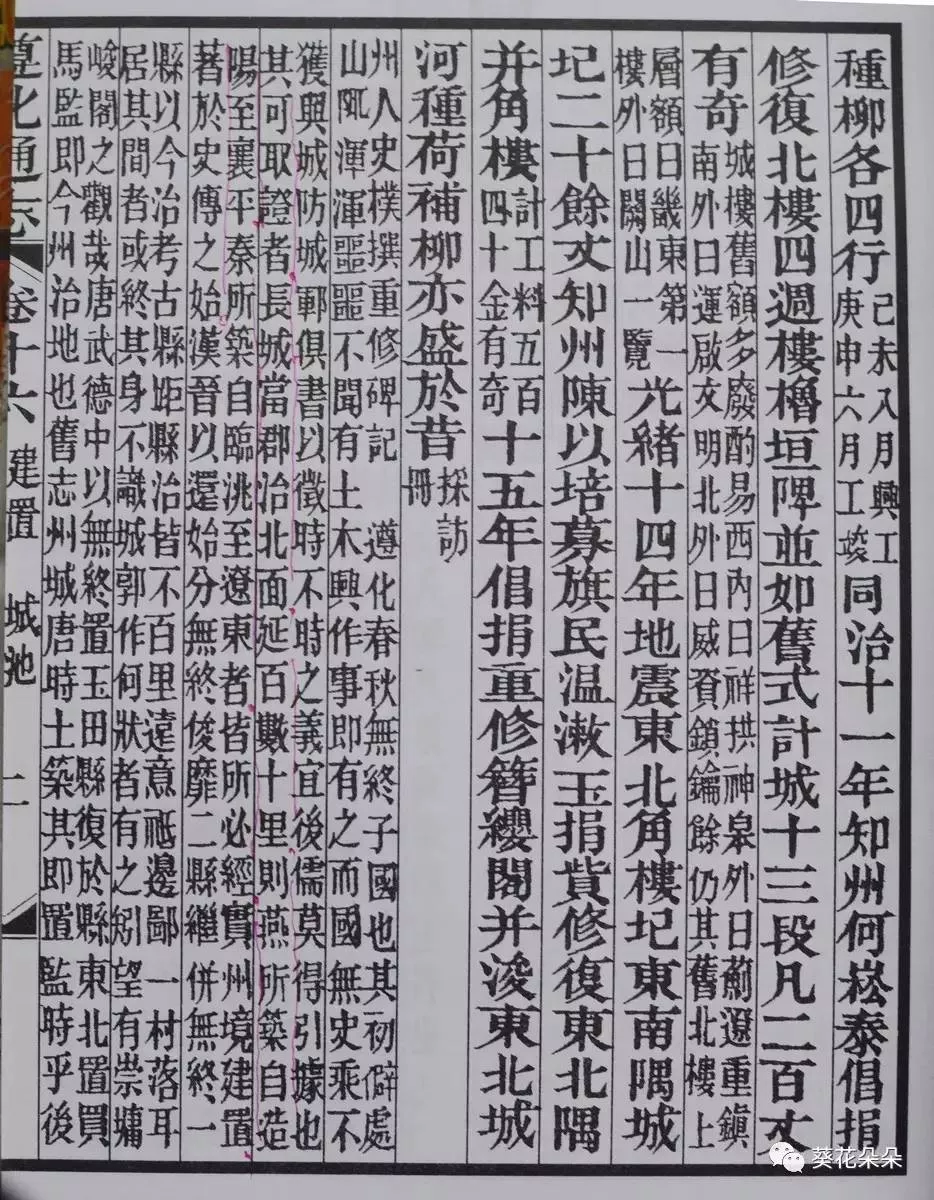 種柳各四行己未八月興工庚申六月工竣同治十一年知州何崧泰倡捐
修復北樓四週樓櫓垣陴並如舊式計城十三段凡二百丈
有奇城樓舊額多廢酌易西內曰祥拱神皋外曰薊遼重鎮南外曰運啟文明北外曰威資鎖鑰餘仍其舊北樓上
層額曰畿東第一樓外曰關山一覽光緒十四年地震東北角樓圮東南隅城
圮二十餘丈知州陳以培募旗民温漱玉捐貲修復東北隅
并角樓計工料五百四十金有奇十五年倡捐重修簪纓閣并浚東北城
河種荷補柳亦盛於昔採訪冊
州人史樸撰重修碑記 遵化春秋無終子國也其初僻處
山陬渾渾噩噩不聞有土木興作事即有之而國無史乘不
獲與城防城鄆俱書以徵時不時之義宜後儒莫得引據也
其可取證者長城當郡治北面延百數十里則燕所築自造
陽至襄平秦所築自臨洮至遼東者皆所必經實州境建置
著於史傳之始漢晉以還始分無終俊靡二縣繼併無終一
縣以今治考古縣距縣治皆不百里遠意祗邊鄙一村落耳
居其間者或終其身不識城郭作何狀者有之矧望有崇墉
峻閣之觀哉唐武德中以無終置玉田縣復於縣東北置買
馬監即今州治地也舊志州城唐時土築其即置監時乎後
遵化通志 卷十六 建置 城池 二
葵花朵朵